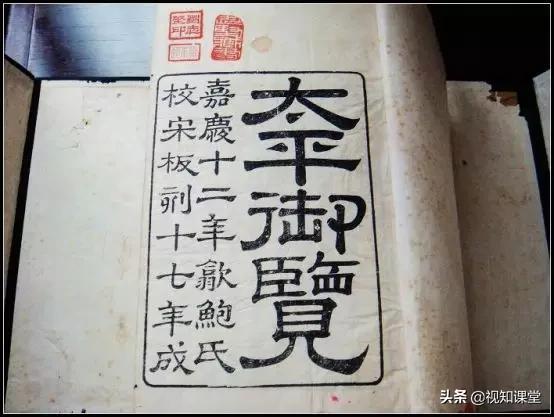 太平御覽
嘉慶十二年歙鮑氏
校宋板刻十七年成
头条 @视知课堂